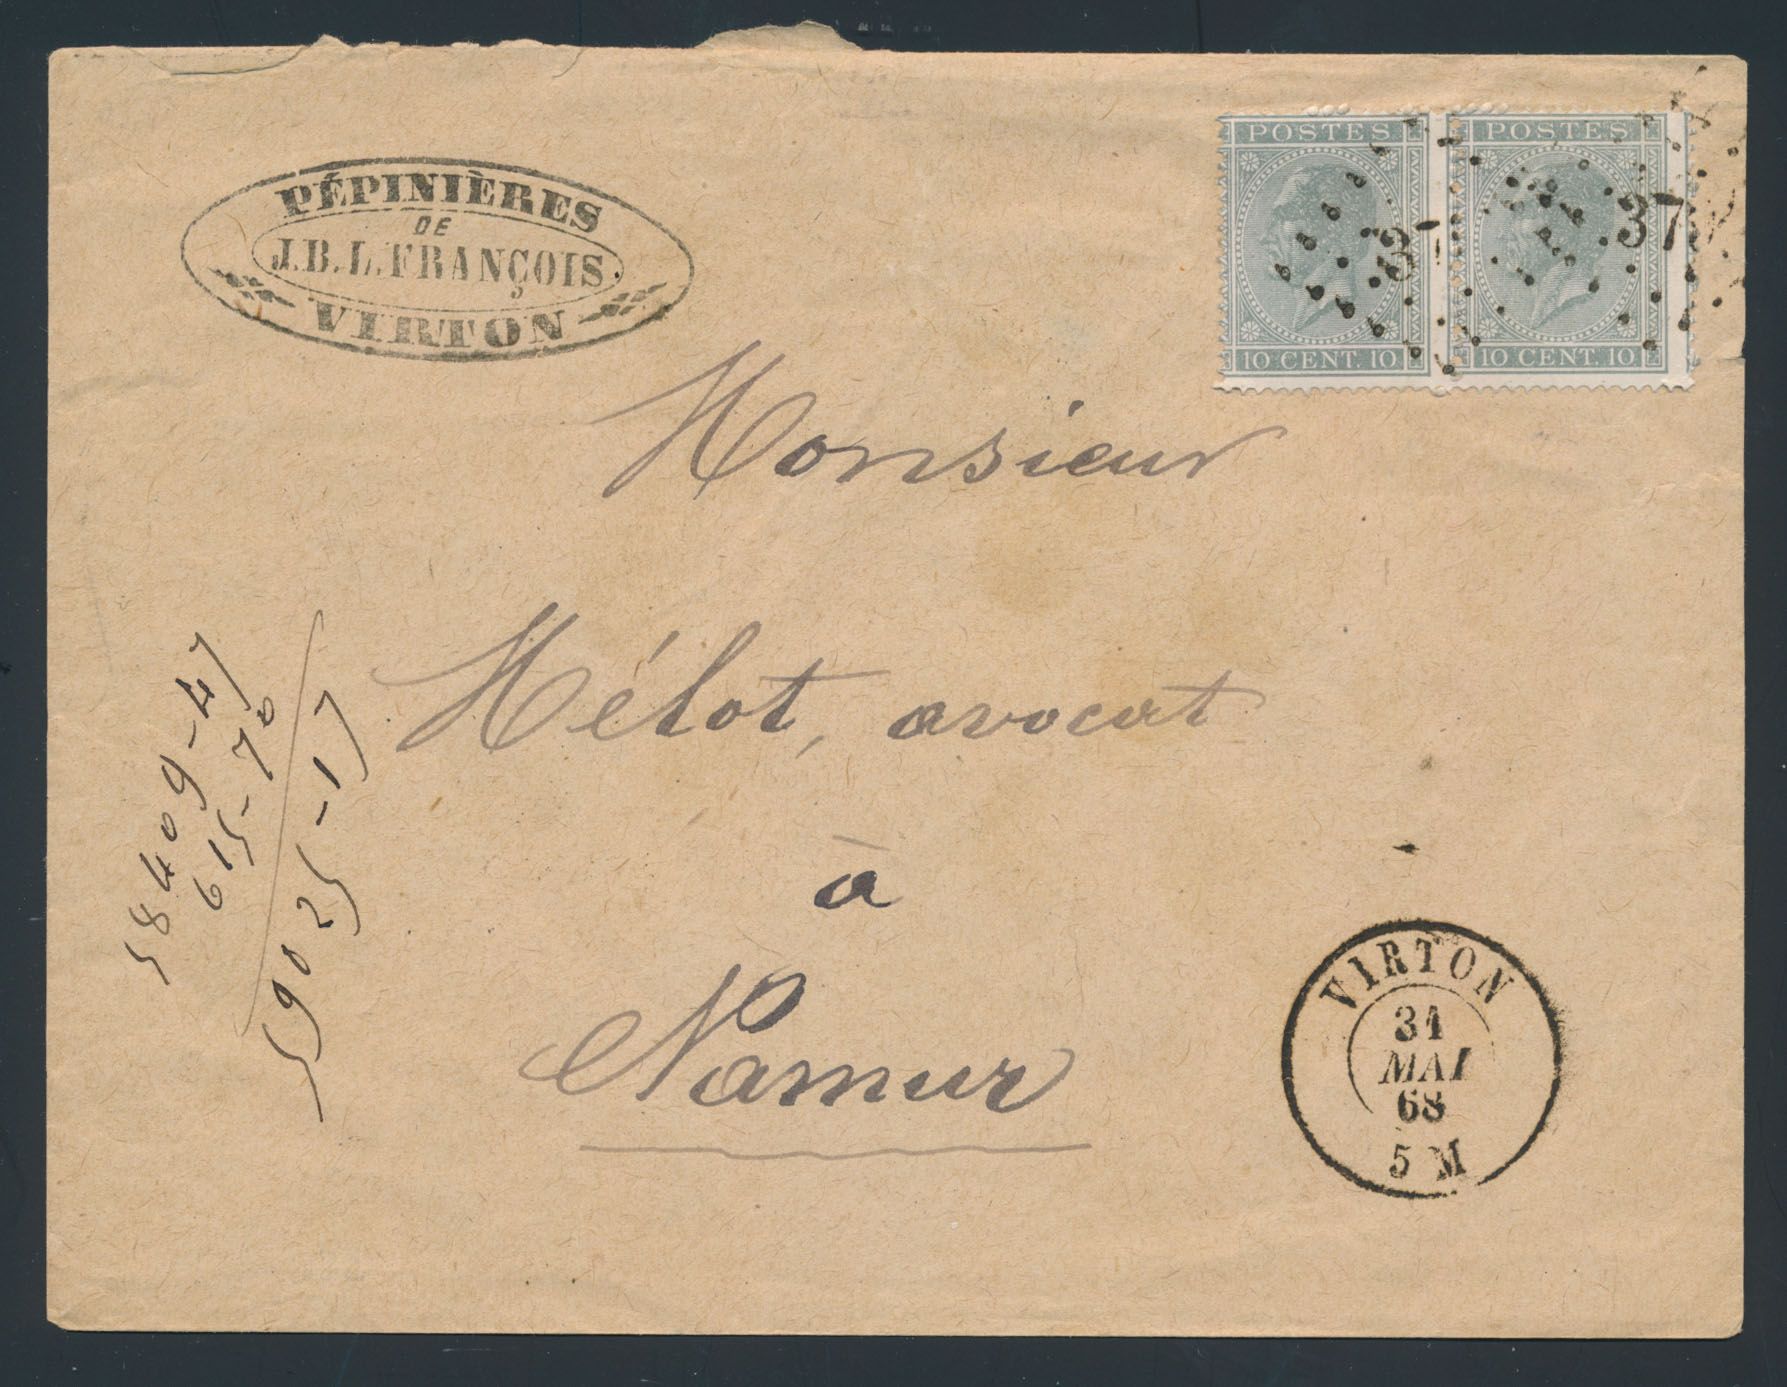 PÉPINIÈRES
DE
J.B.L. FRANÇOIS
VIRTON
POSTES
10 CENT. 10
POSTES
10 CENT. 10
37
Monsieur
Mélot, avocat
à
Namur
58409-47
615-70
59025-17
VIRTON
31
MAI
68
5 M